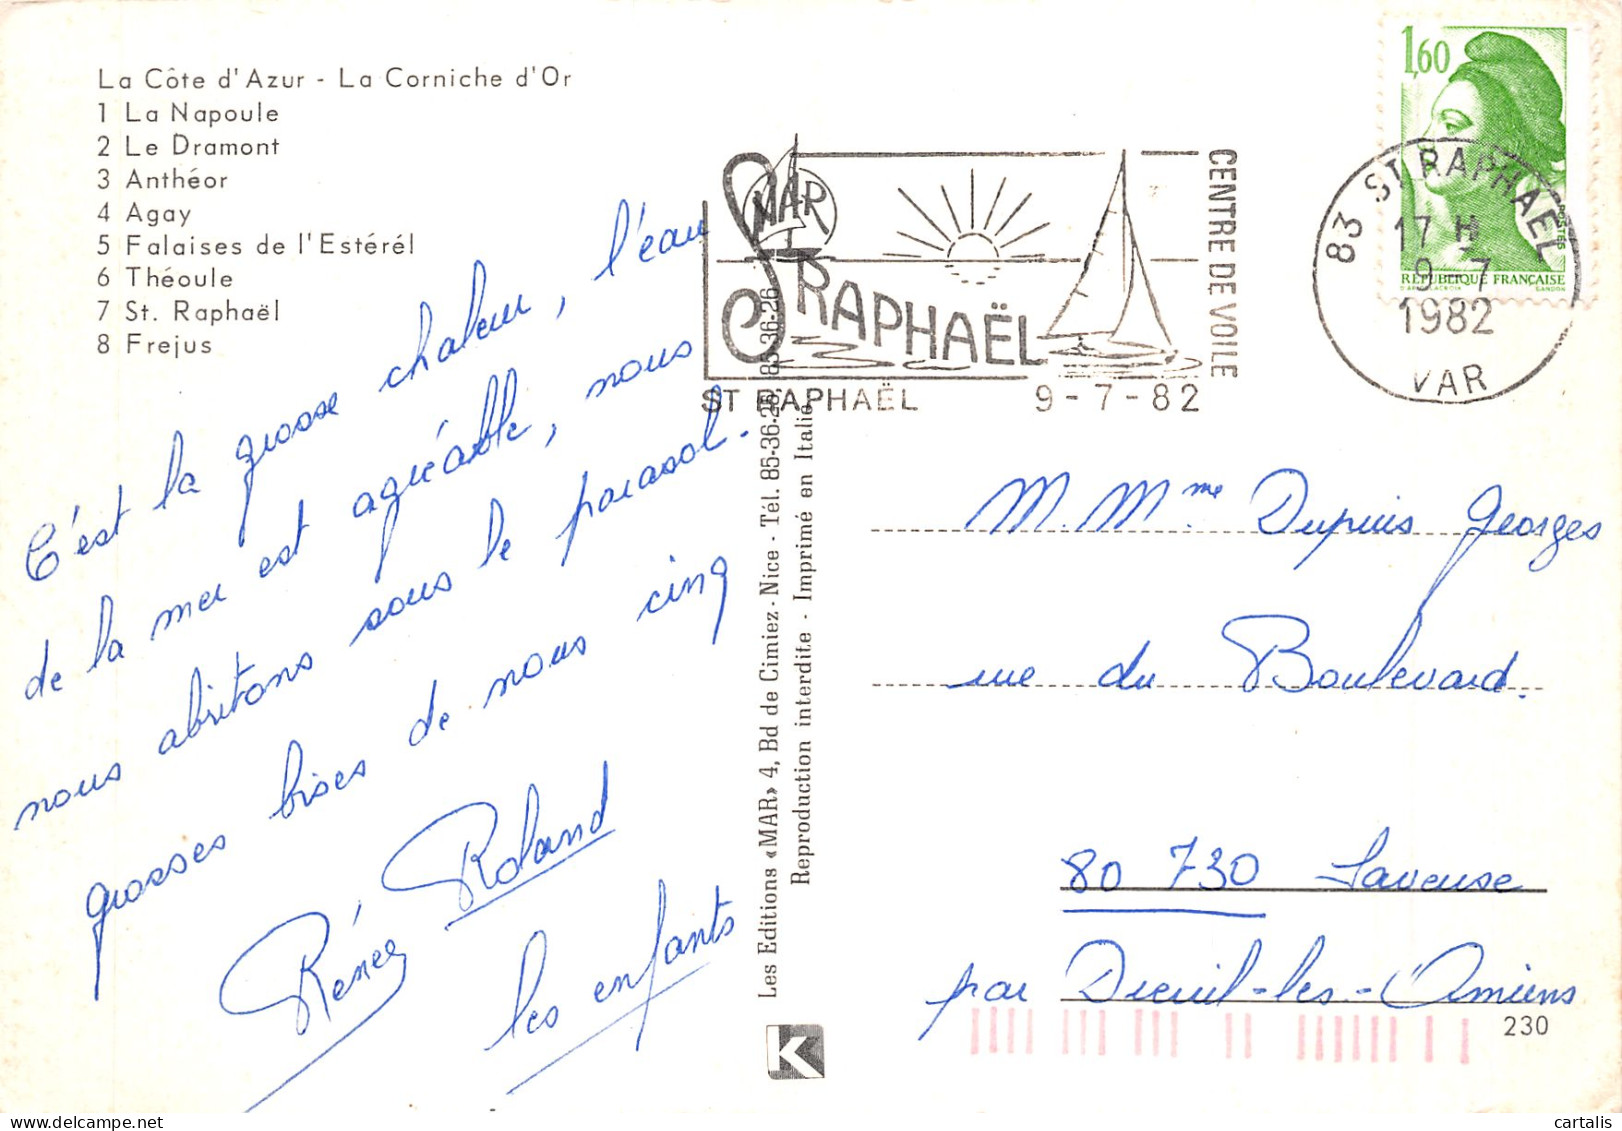 La Côte d'Azur - La Corniche d'Or
1 La Napoule
2 Le Dramont
3 Anthéor
4 Agay
5 Falaises de l'Estérél
6 Théoule
7 St. Raphaël
8 Frejus
C'est la grosse chaleur, l'eau
de la mer est agréable, nous
nous abritons sous le parasol.
grosses bises de nous cinq
Rénée Roland
les enfants
Les Editions «MAR» 4, Bd de Cimiez - Nice - Tél. 85-36-26, 85-36-26
Reproduction interdite - Imprimé en Italie
K
MAR
ST RAPHAËL
CENTRE DE VOILE
ST RAPHAËL 9-7-82
1,60
POSTES
RÉPUBLIQUE FRANÇAISE
GANDON
83 ST RAPHAEL
17 H
9-7
1982
VAR
M. Mme Dupuis Georges
rue du Boulevard.
80 730 Saveuse
par Dreuil-les-Amiens
230
cartalis